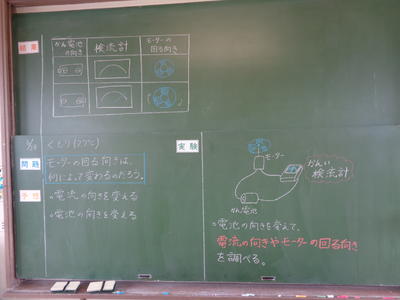 結果
かん電池
の向き
検流計
モーターの
回る向き
くもり(27℃)
問題
モーターの回る向きは、
何によって変わるのだろう。
予想
。電流の向きを変える
。電池の向きを変える
実験
モーター
かんい
検流計
かん電池
。電池の向きを変えて、
電流の向きやモーターの回る向き
を調べる。